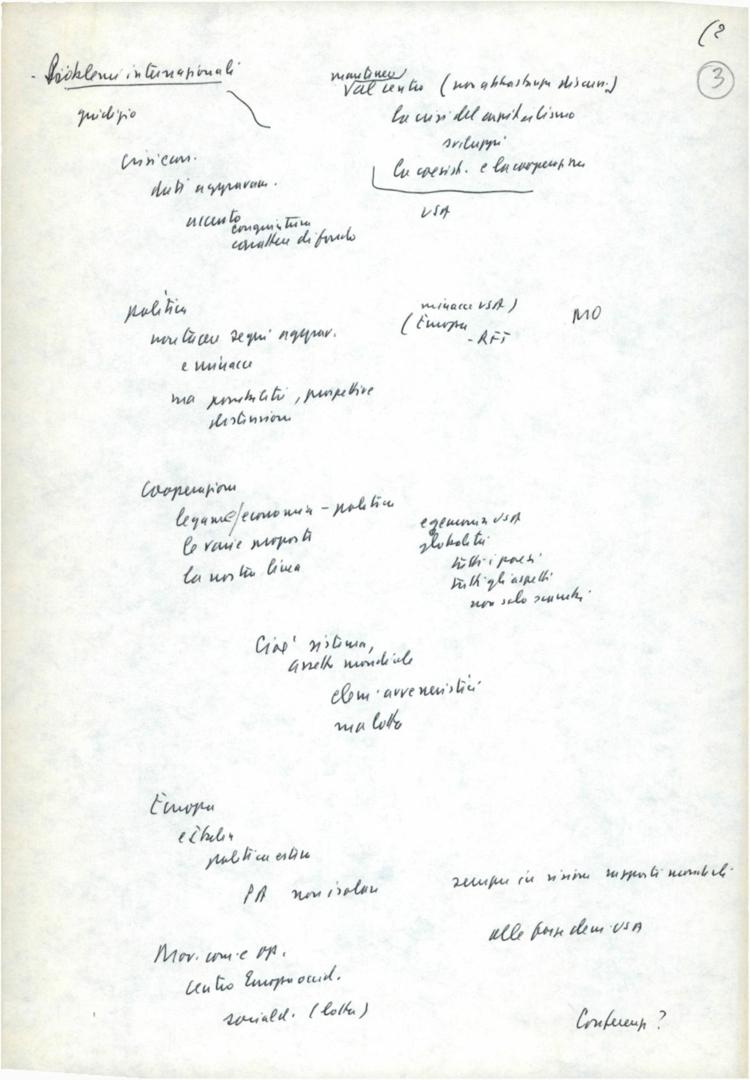 (2
3
- Problemi internazionali
giudizio
mantenere
al centro (non abbastanza discuss.)
la crisi del capitalismo
sviluppi
la coesist. e la cooperazione
USA
crisi econ.
dati aggravam.
accento
congiuntura
carattere di fondo
politica
non tacere segni aggrav.
e minacce
ma possibilità, prospettive
distensione
minacce USA)
(Europa
- RFT
MO
Cooperazione
legame/economia - politica
le varie proposte
la nostra linea
egemonia USA
globalità
tutti i paesi
tutti gli aspetti
non solo scambi
Cioè sistema,
assetto mondiale
elem. avveneristici
ma lotta
Europa
e Italia
politica estera
PA non isolare
sempre in visione rapporti mondiali
alle forze dem. USA
Mov. com. e op.
centro Europa occid.
sociald. (lotta)
Conferenza ?